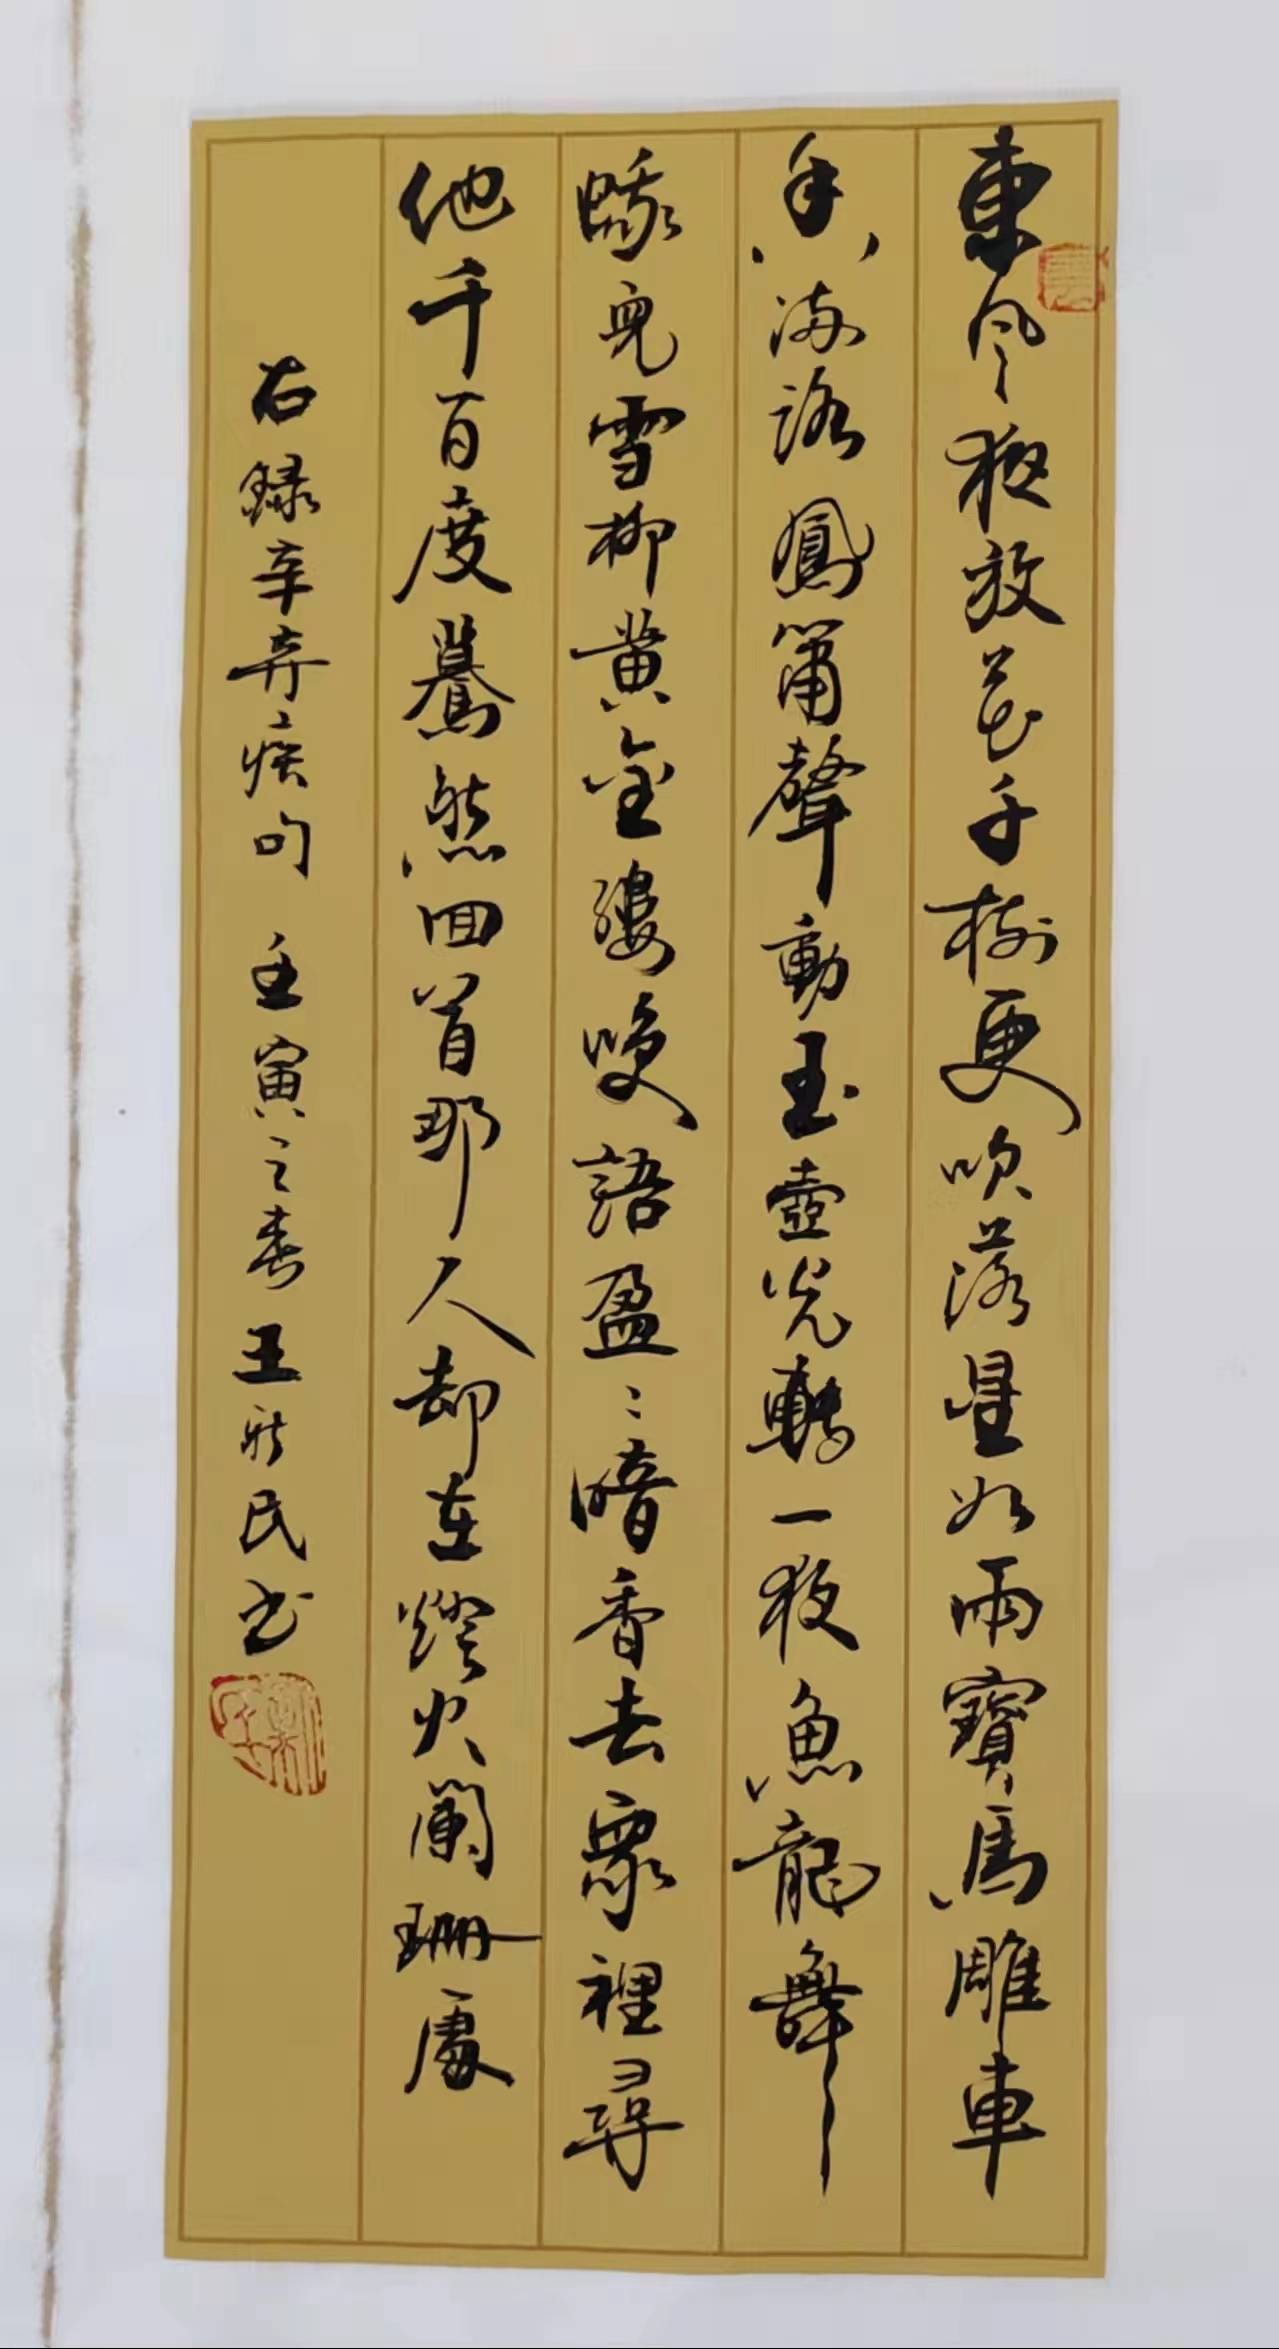 東风夜放花千樹更吹落星如雨寶馬雕車
香滿路鳳簫聲動玉壺光轉一夜魚龍舞
蛾兒雪柳黄金縷笑語盈〻暗香去眾裡尋
他千百度驀然回首那人却在燈火闌珊處
右録辛弃疾句 壬寅之春王新民书